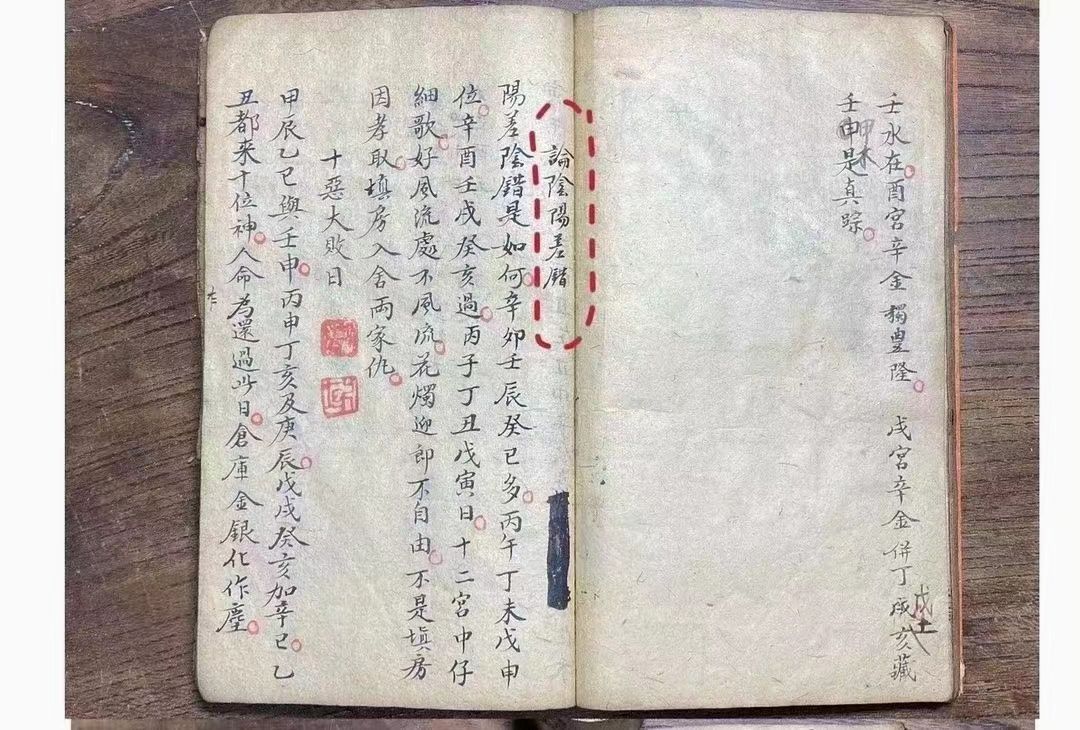 壬水在酉宮辛金獨豊隆。戌宮辛金併丁戊亥藏
壬甲是真踪。
論陰陽差錯
陽差陰錯是如何辛卯壬辰癸巳多。丙午丁未戊申
位。辛酉壬戌癸亥過。丙子丁丑戊寅日。十二宮中仔
細歌。好風流處不風流。花燭迎郎不自由。不是填房
因孝取。填房入舍両家仇。
十惡大敗日
甲辰乙巳與壬申。丙申丁亥及庚辰。戊戌癸亥加辛巳。乙
丑都來十位神。人命為還過此日。倉庫金銀化作塵。